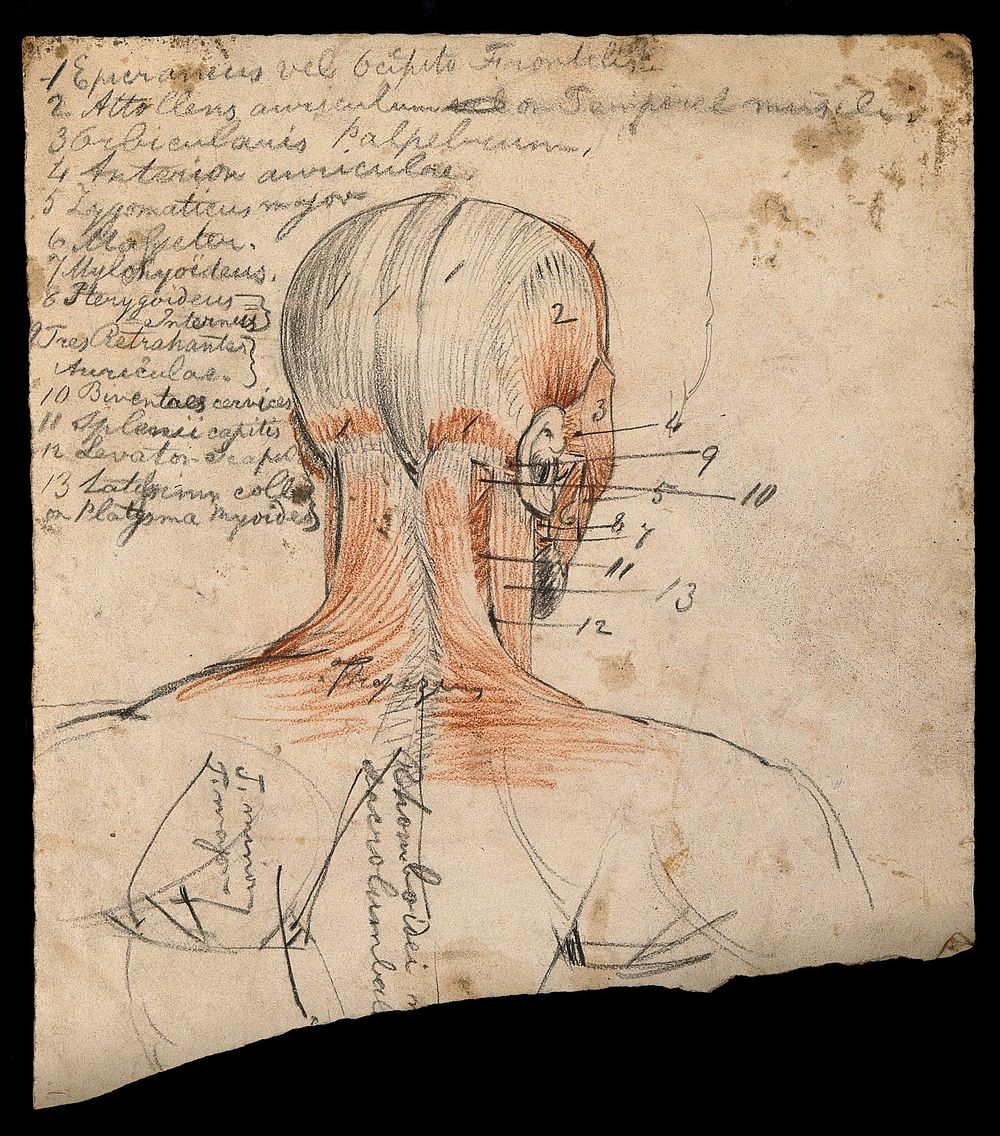 1 Epicraneus vel Occipito Frontalis
2 Attollens auriculum or Temporal muscle.
3 Orbicularis Palpebrum,
4 Anterior auriculae
5 Zygomaticus major
6
7 Mylohyoideus.
8 Pterygoideus
Internus
9 Tres Retrahantes
Auriculae.
10 cervices
11 Splenii capitis
12 Levator Scapul
13 Latissimus colli
or Platysma Myoides
1
1
1
1
2
3
4
9
5
10
6
8
7
1
1
11
13
12
Trapezius
T. minor
Rhomboidei
Sacrolumbal